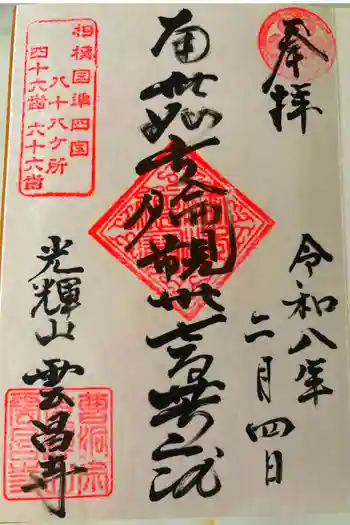 奉拝
令和八年
二月四日
南無如意輪観世音菩薩
相模国準四国
八十八ケ所
四十六番 六十六番
光輝山
雲昌寺
曹洞宗